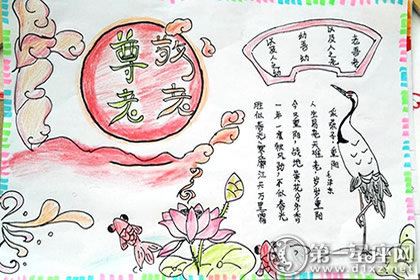 敬老
尊老
老吾老
以及人之老
幼吾幼
以及人之幼
采桑子·重阳 毛泽东
人生易老天难老 岁岁重阳
今又重阳 战地黄花分外香
一年一度秋风劲 不似春光
胜似春光 寥廓江天万里霜
第一星座网
www.d1xz.net